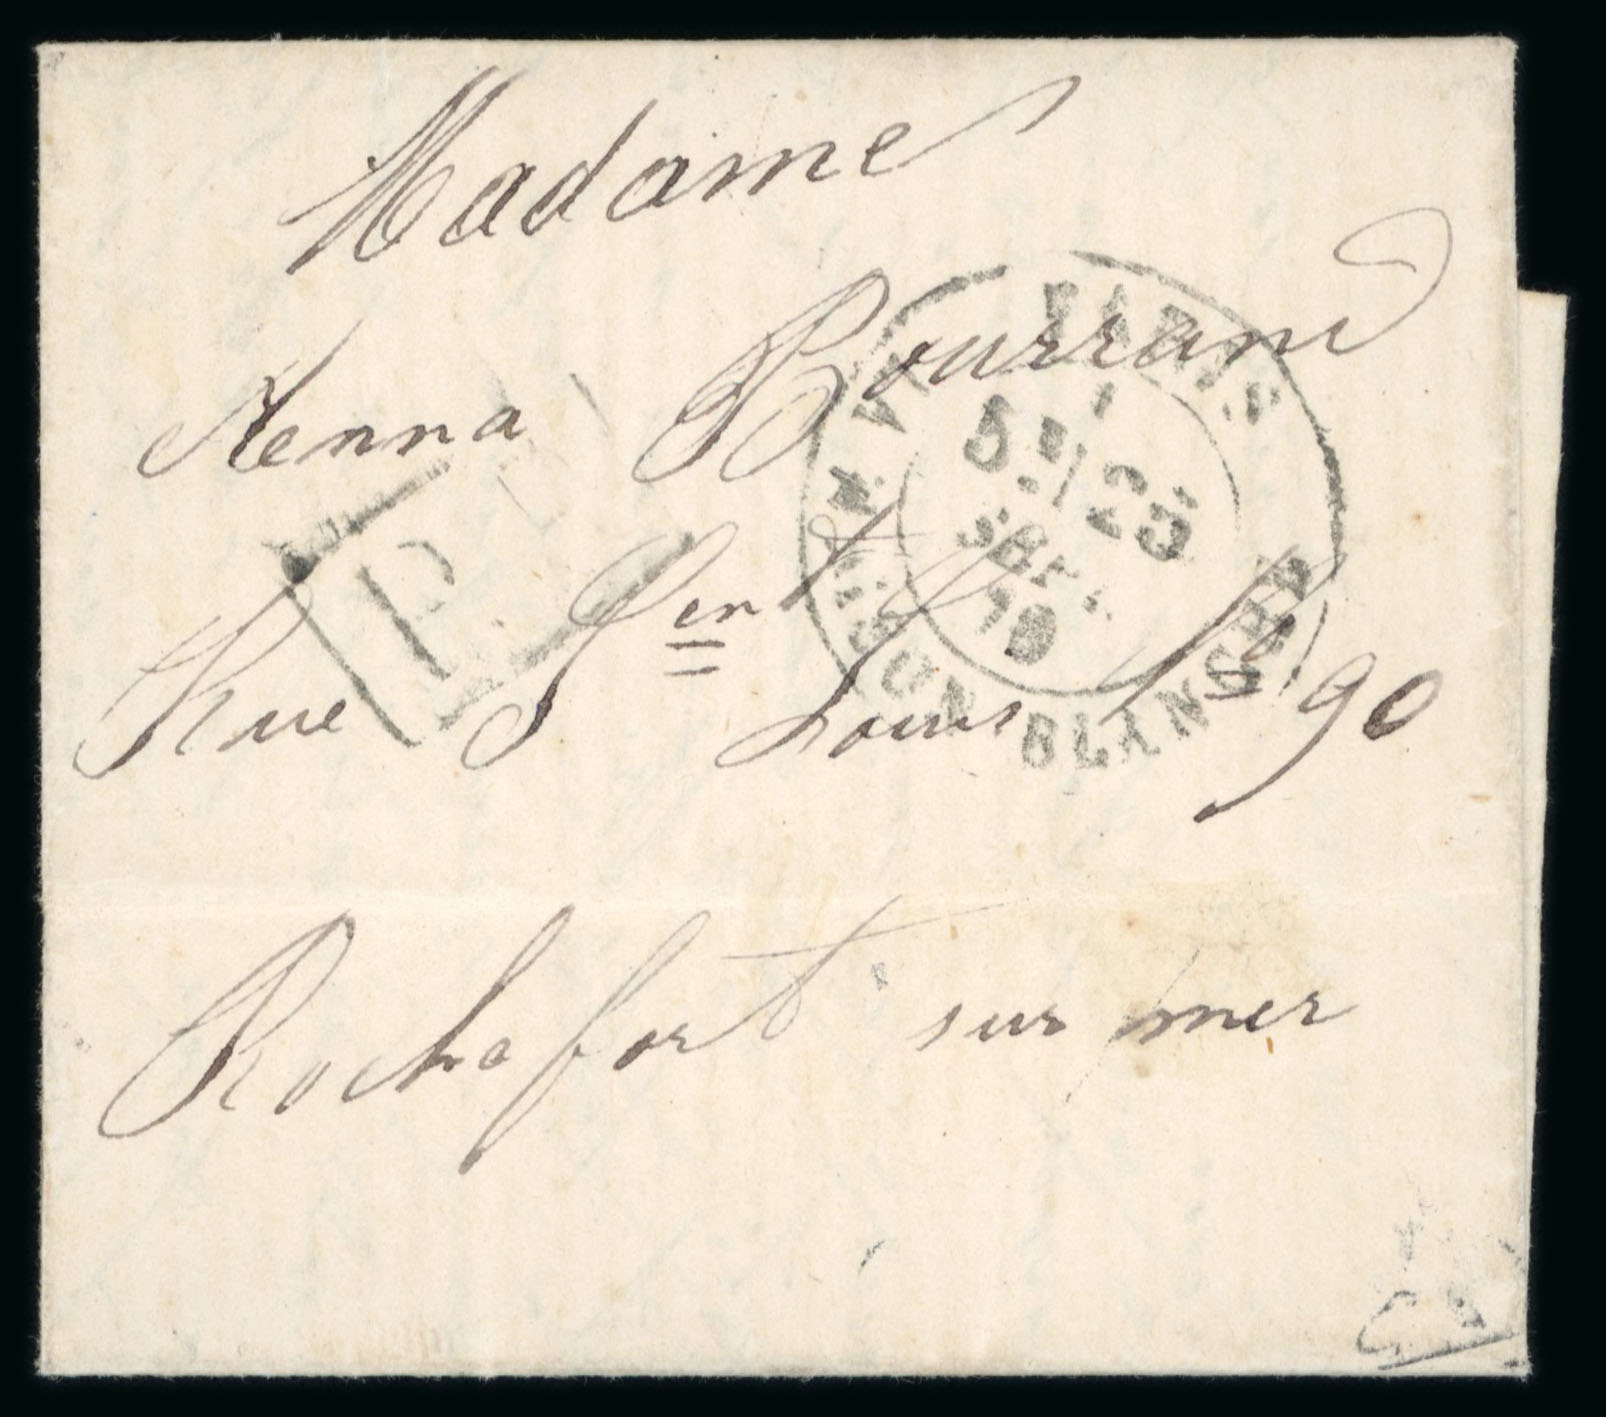 Madame
Nenna Bourrand
Rue St Louis No 90
Rochefort sur mer
PARIS
LA MAISON BLANCHE
5E/25
SEPT.
70
P.P.